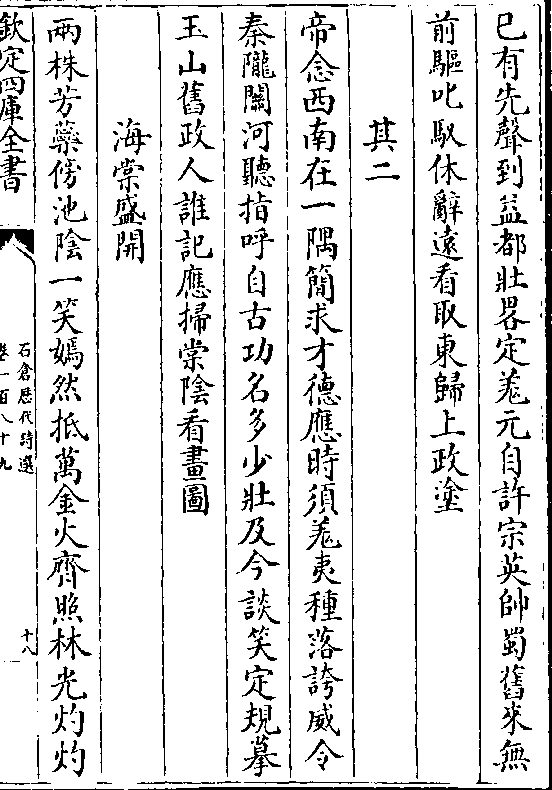 已有先聲到益都壯畧定羗元自許宗英帥蜀舊來無
前驅叱馭休辭遠看取東歸上政塗
其二
帝念西南在一隅簡求才德應時須羗夷種落誇威令
秦隴關河聽指呼自古功名多少壯及今談笑定規摹
玉山舊政人誰記應掃棠陰看畫圖
海棠盛開
兩株芳蘂傍池陰一笑嫣然抵萬金火齊照林光灼灼
欽定四庫全書
石倉歷代詩選
卷一百八十九
十八